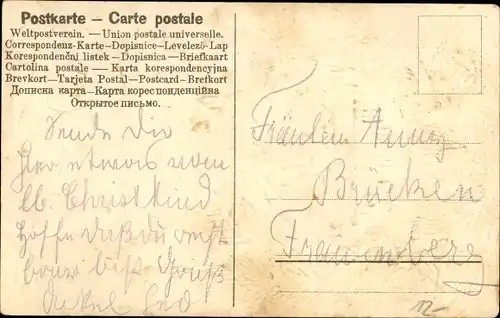 Postkarte – Carte postale
Weltpostverein. — Union postale universelle.
Correspondenz-Karte—Dopisnice—Levelező-Lap
Korespondenční listek—Dopisnica—Briefkaart
Cartolina postale — Karta korespondencyjna
Brevkort—Tarjeta Postal—Postcard—Brefkort
Дописна карта—Карта кореспонденційна
Открытое письмо.
Sende Dir
hier etwas vom
lb. Christkind
Hoffe daß du
bist Gruß
Fräulein Anny
Brücken
12-